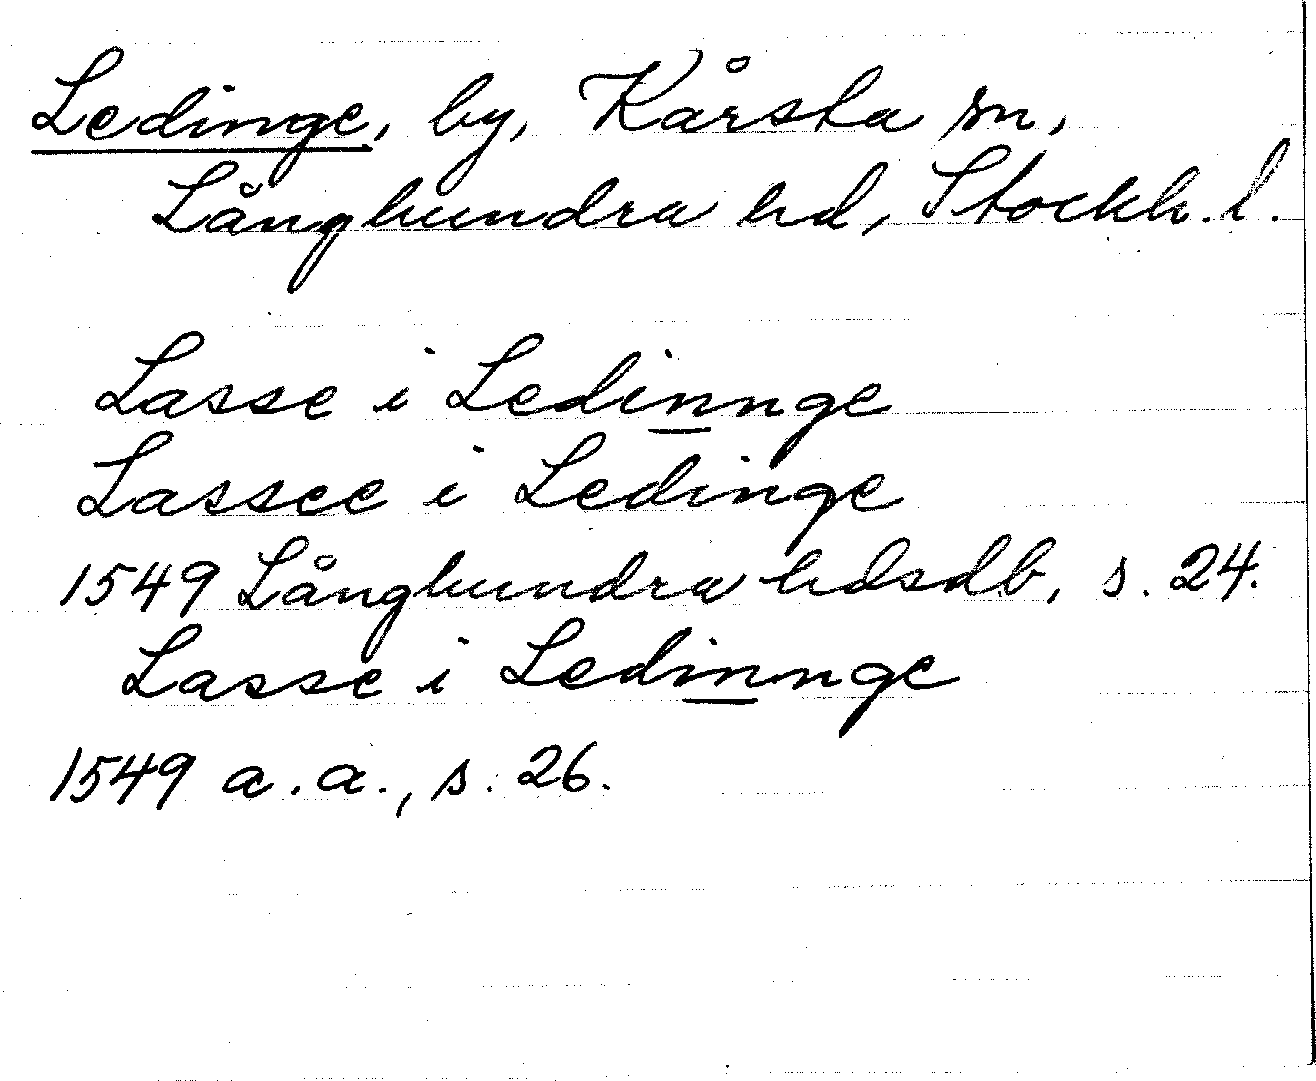 Ledinge, by, Kårsta sn,
Långhundra hd, Stockh. l.
Lasse i Ledinnge
Lassee i Ledinge
1549 Långhundra hdsdb, s. 24.
Lasse i Ledinnge
1549 a.a., s. 26.